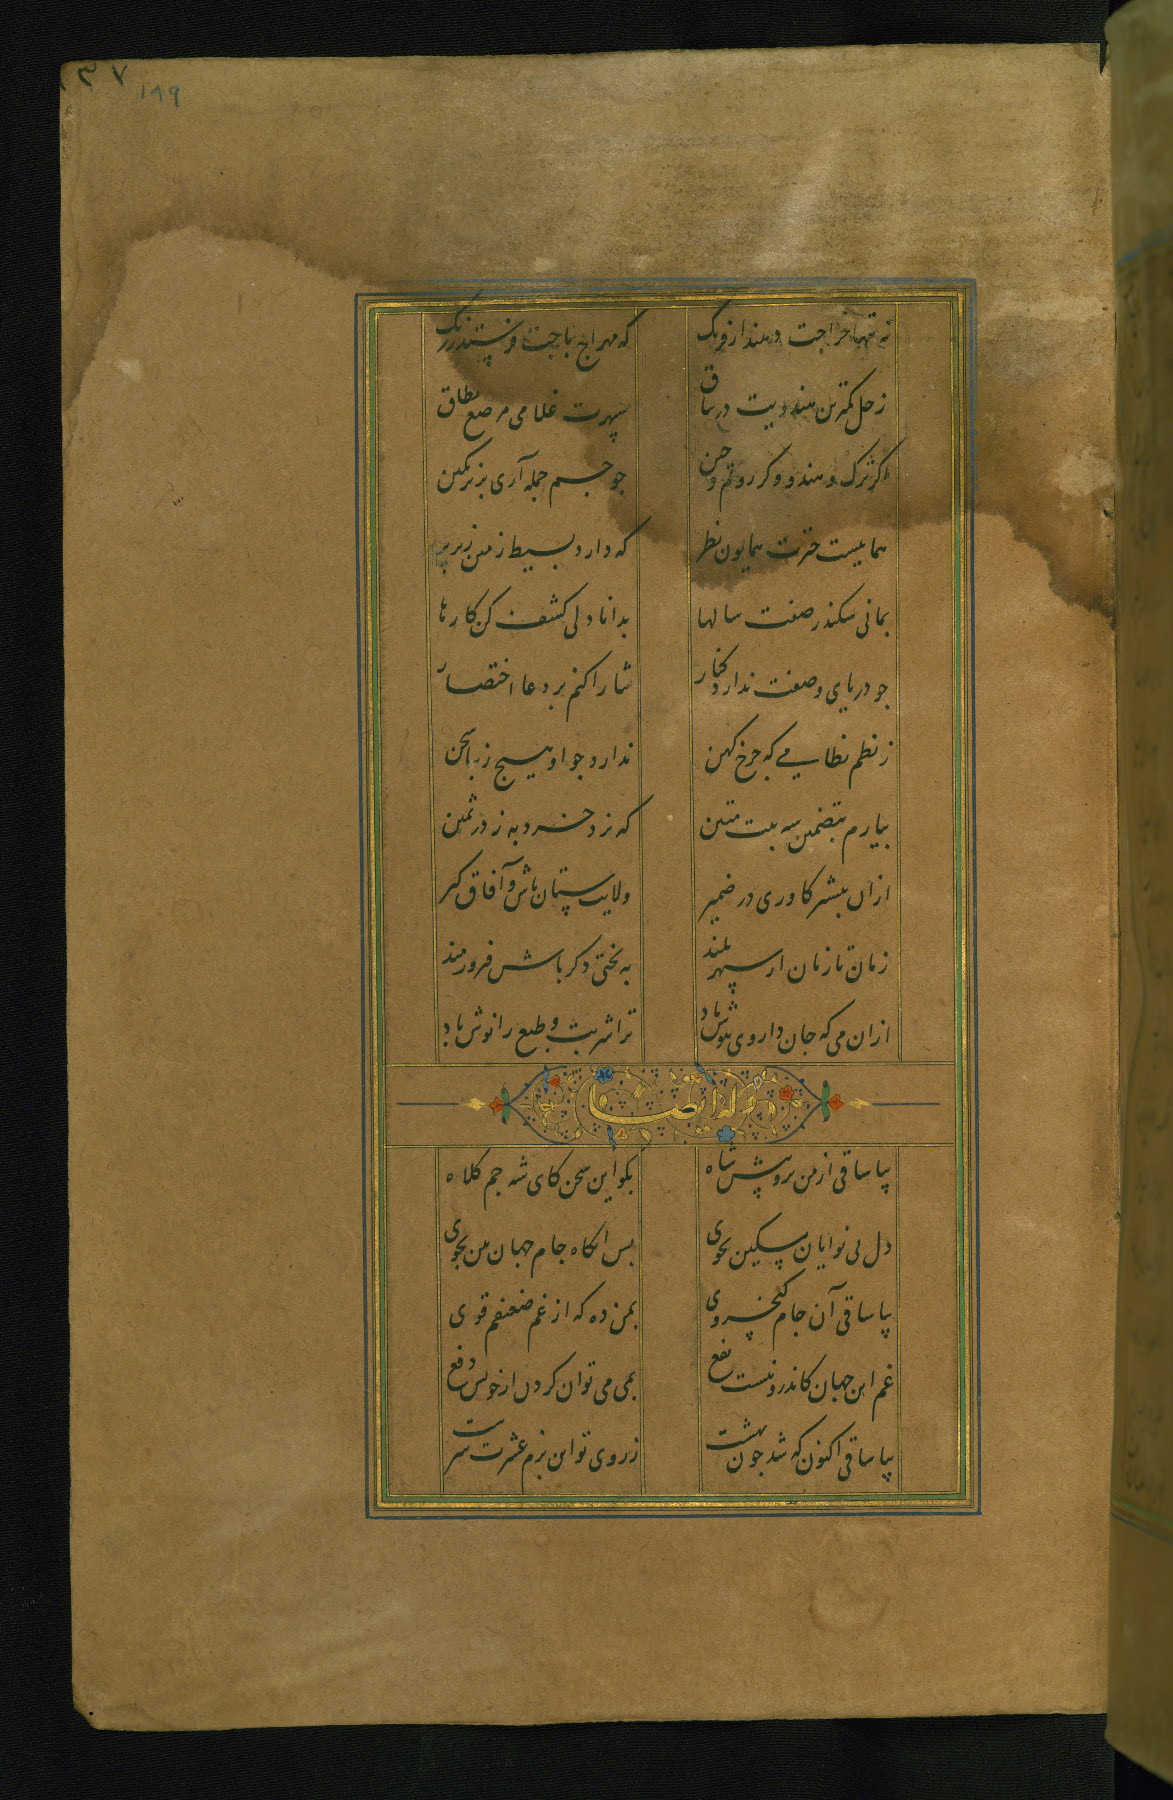 ۳۷
۱۸۹
نه تنها خراجت دهند از فرنگ
که مهراج باجت فرستد ز زنگ
زحل کمترین هندویت در یتاق
سپهرت غلامی مرصع نطاق
اکر ترک و هندو وکر روم و چین
جو جم جمله آری بزیر نکین
هماییست چترت همایون نظر
که دارد بسیط زمین زیر پر
بمانی سکندر صفت سالها
بدانا دلی کشف کن کارها
جو دریای وصفت ندارد کنار
ثنا را کنم بر دعا اختصار
ز نظم نظامی که چرخ کهن
ندارد جو او هیچ زیبا سخن
بیارم بتضمین سه بیت متین
که نزد خرد به ز در ثمین
ازان بیشتر کاوری در ضمیر
ولایت ستان باش و آفاق کیر
زمان تا زمان از سپهر بلند
به بختی دکر باش فیروزمند
ازان می که جان داروی هوش باد
ترا شربت و طبع را نوش باد
وله ایضا
بیا ساقی از من برو پیش شاه
بکو این سخن کای شه جم کلاه
دل بی نوایان مسکین بجوی
بس انکاه جام جهان بین بجوی
بیا ساقی آن جام کیخسروی
بمن ده که از غم ضعیفم قوی
غم این جهان کاندرو نیست نفع
بمی می توان کردن از خویش دفع
بیا ساقی اکنون که شد جون بهشت
ز روی تو این بزم عشرت سرشت